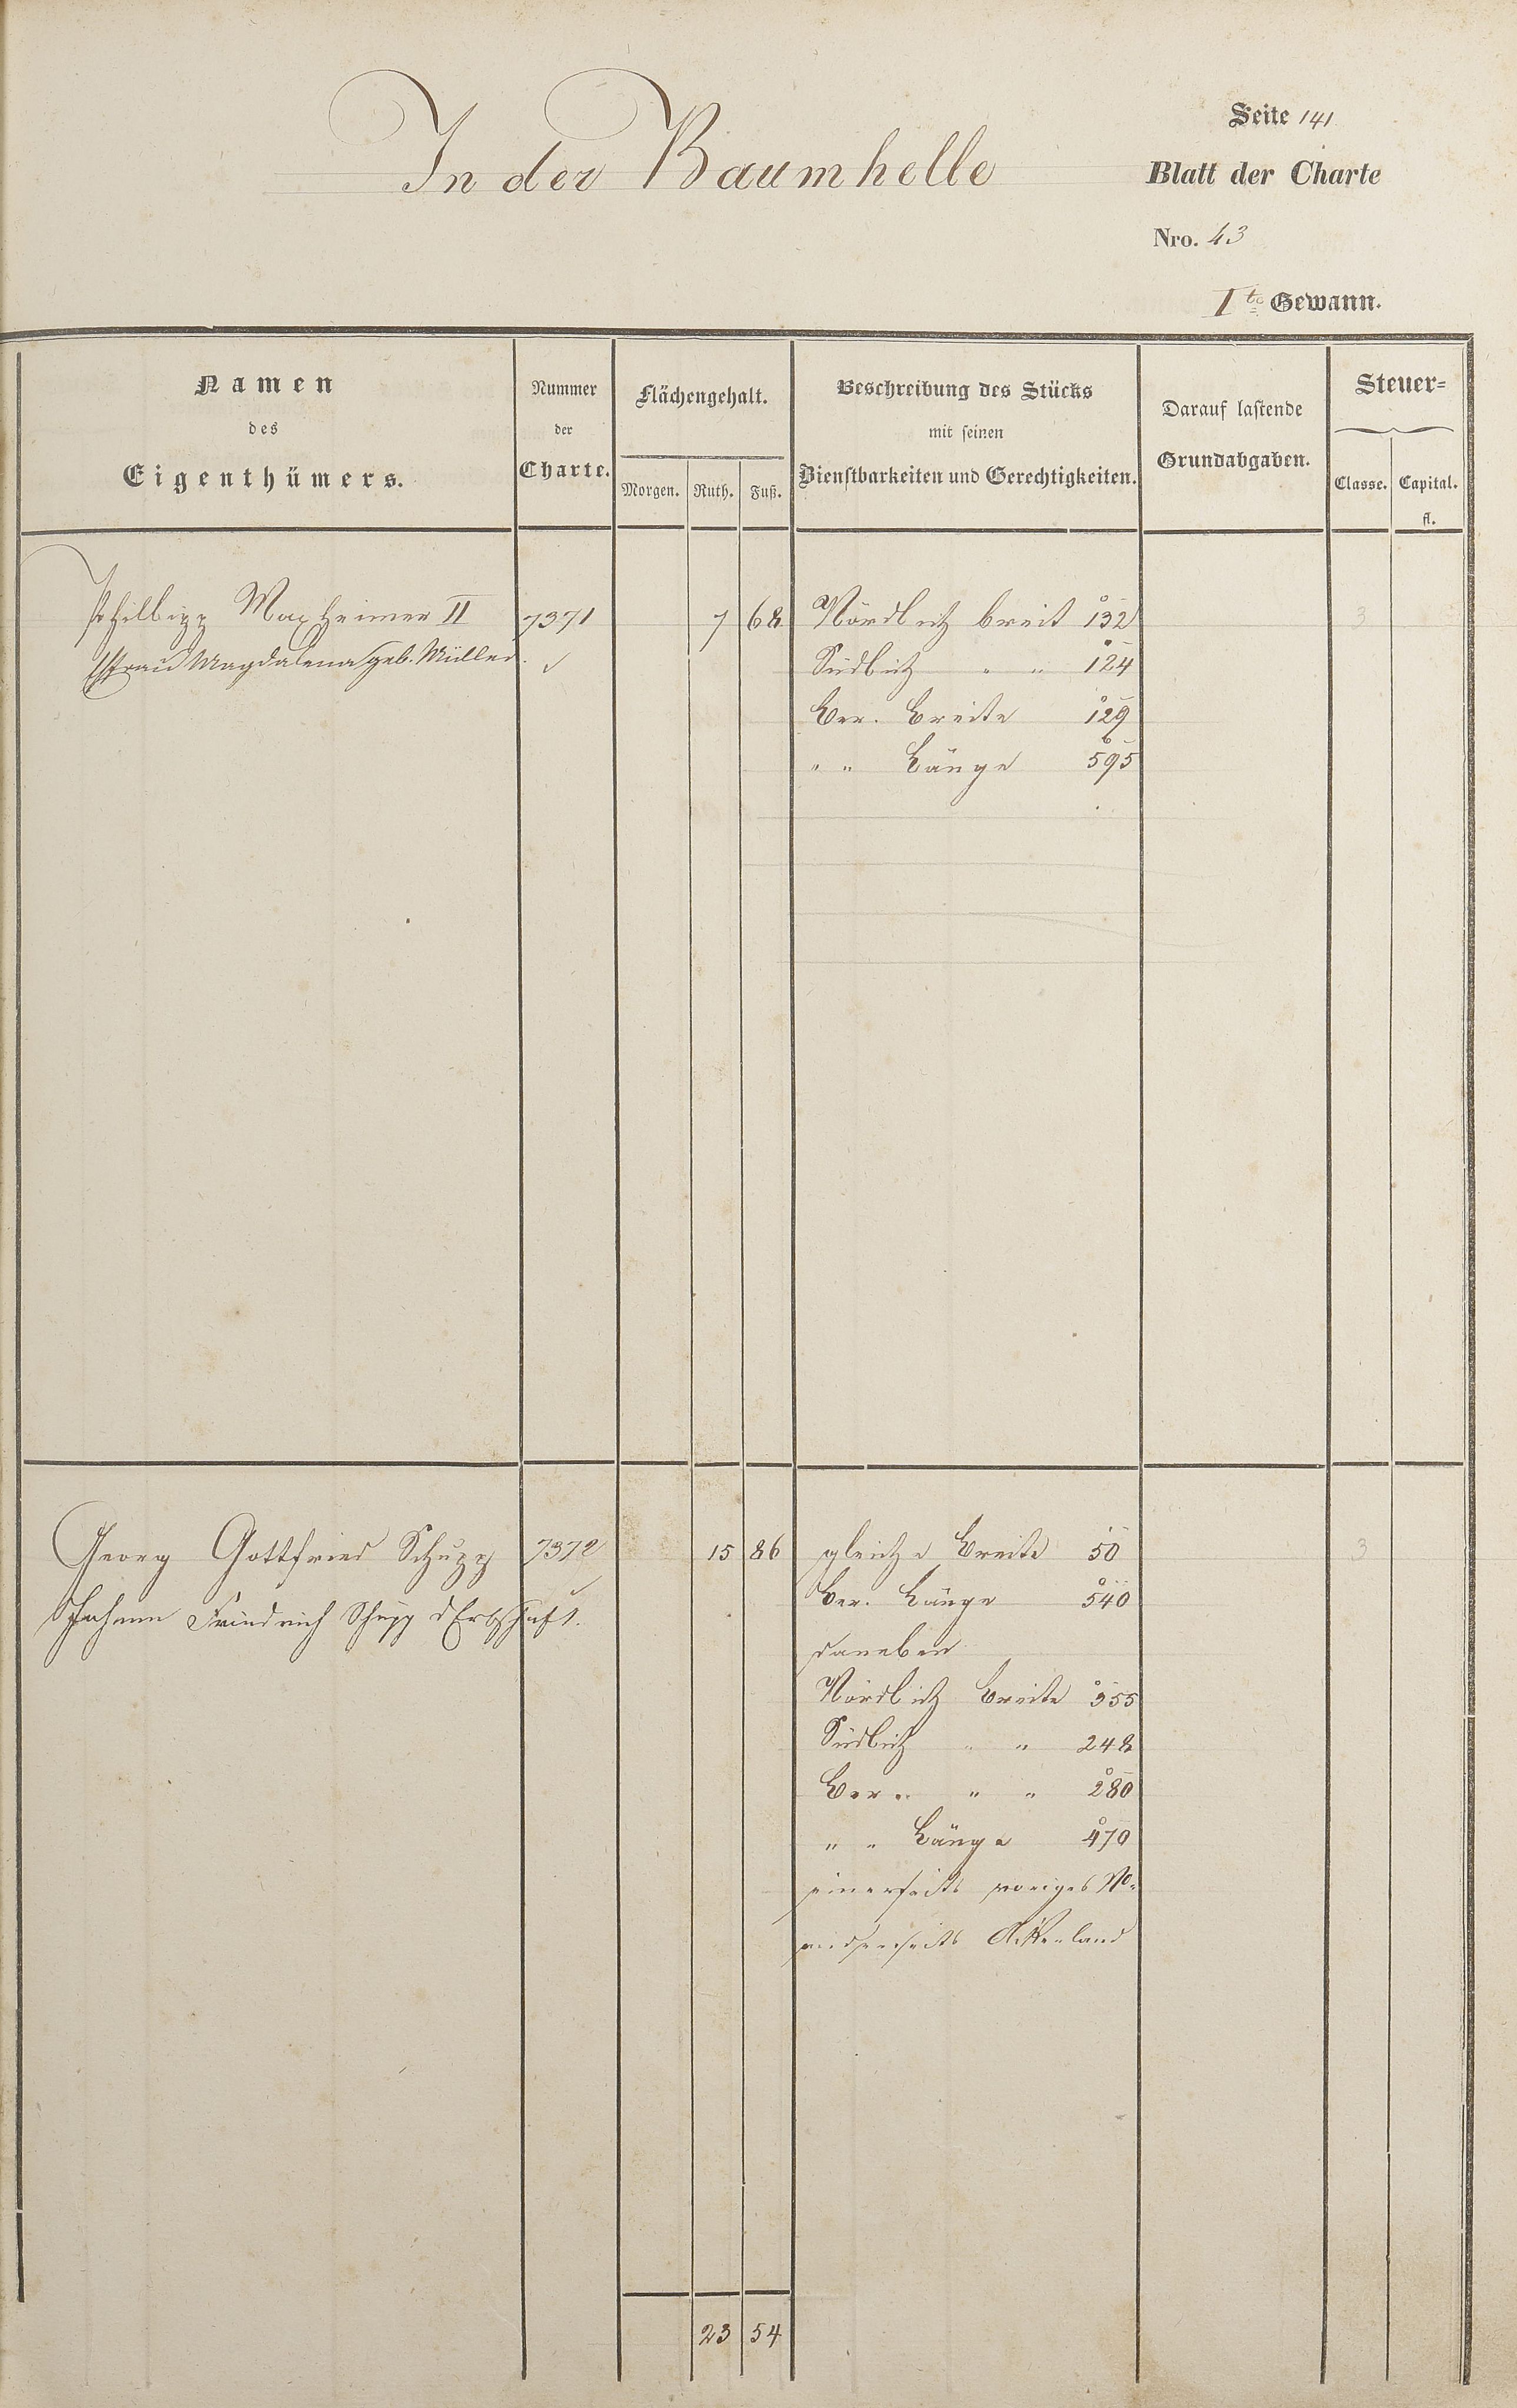 In der Baumhelle
Seite 141
Blatt der Charte
Nro. 43
I to Gewann.
Namen
des
Eigenthümers.
Nummer
der
Charte.
Flächengehalt.
Morgen. Ruth. Fuß.
Beschreibung des Stücks
mit seinen
Dienstbarkeiten und Gerechtigkeiten.
Darauf lastende
Grundabgaben.
Steuer=
Classe. Capital.
fl.
Philbipp Maxheimer II 7371 7 68 Nördlich breit 132 3
Magdalena geb. Müller. Südlich " " 124
Ber. Breite 129
" " Länge 595
Georg Gottfried Schupp 7372 15 86 gleiche Breite 50 3
Friedrich Schupp d Erbschaft. Ber. Länge 540
daneben
Nördlich Breite 355
Südlich " " 248
Ber. " " 280
" " Länge 470
einerseits voriges No.
anderseits Ackerland
23 54